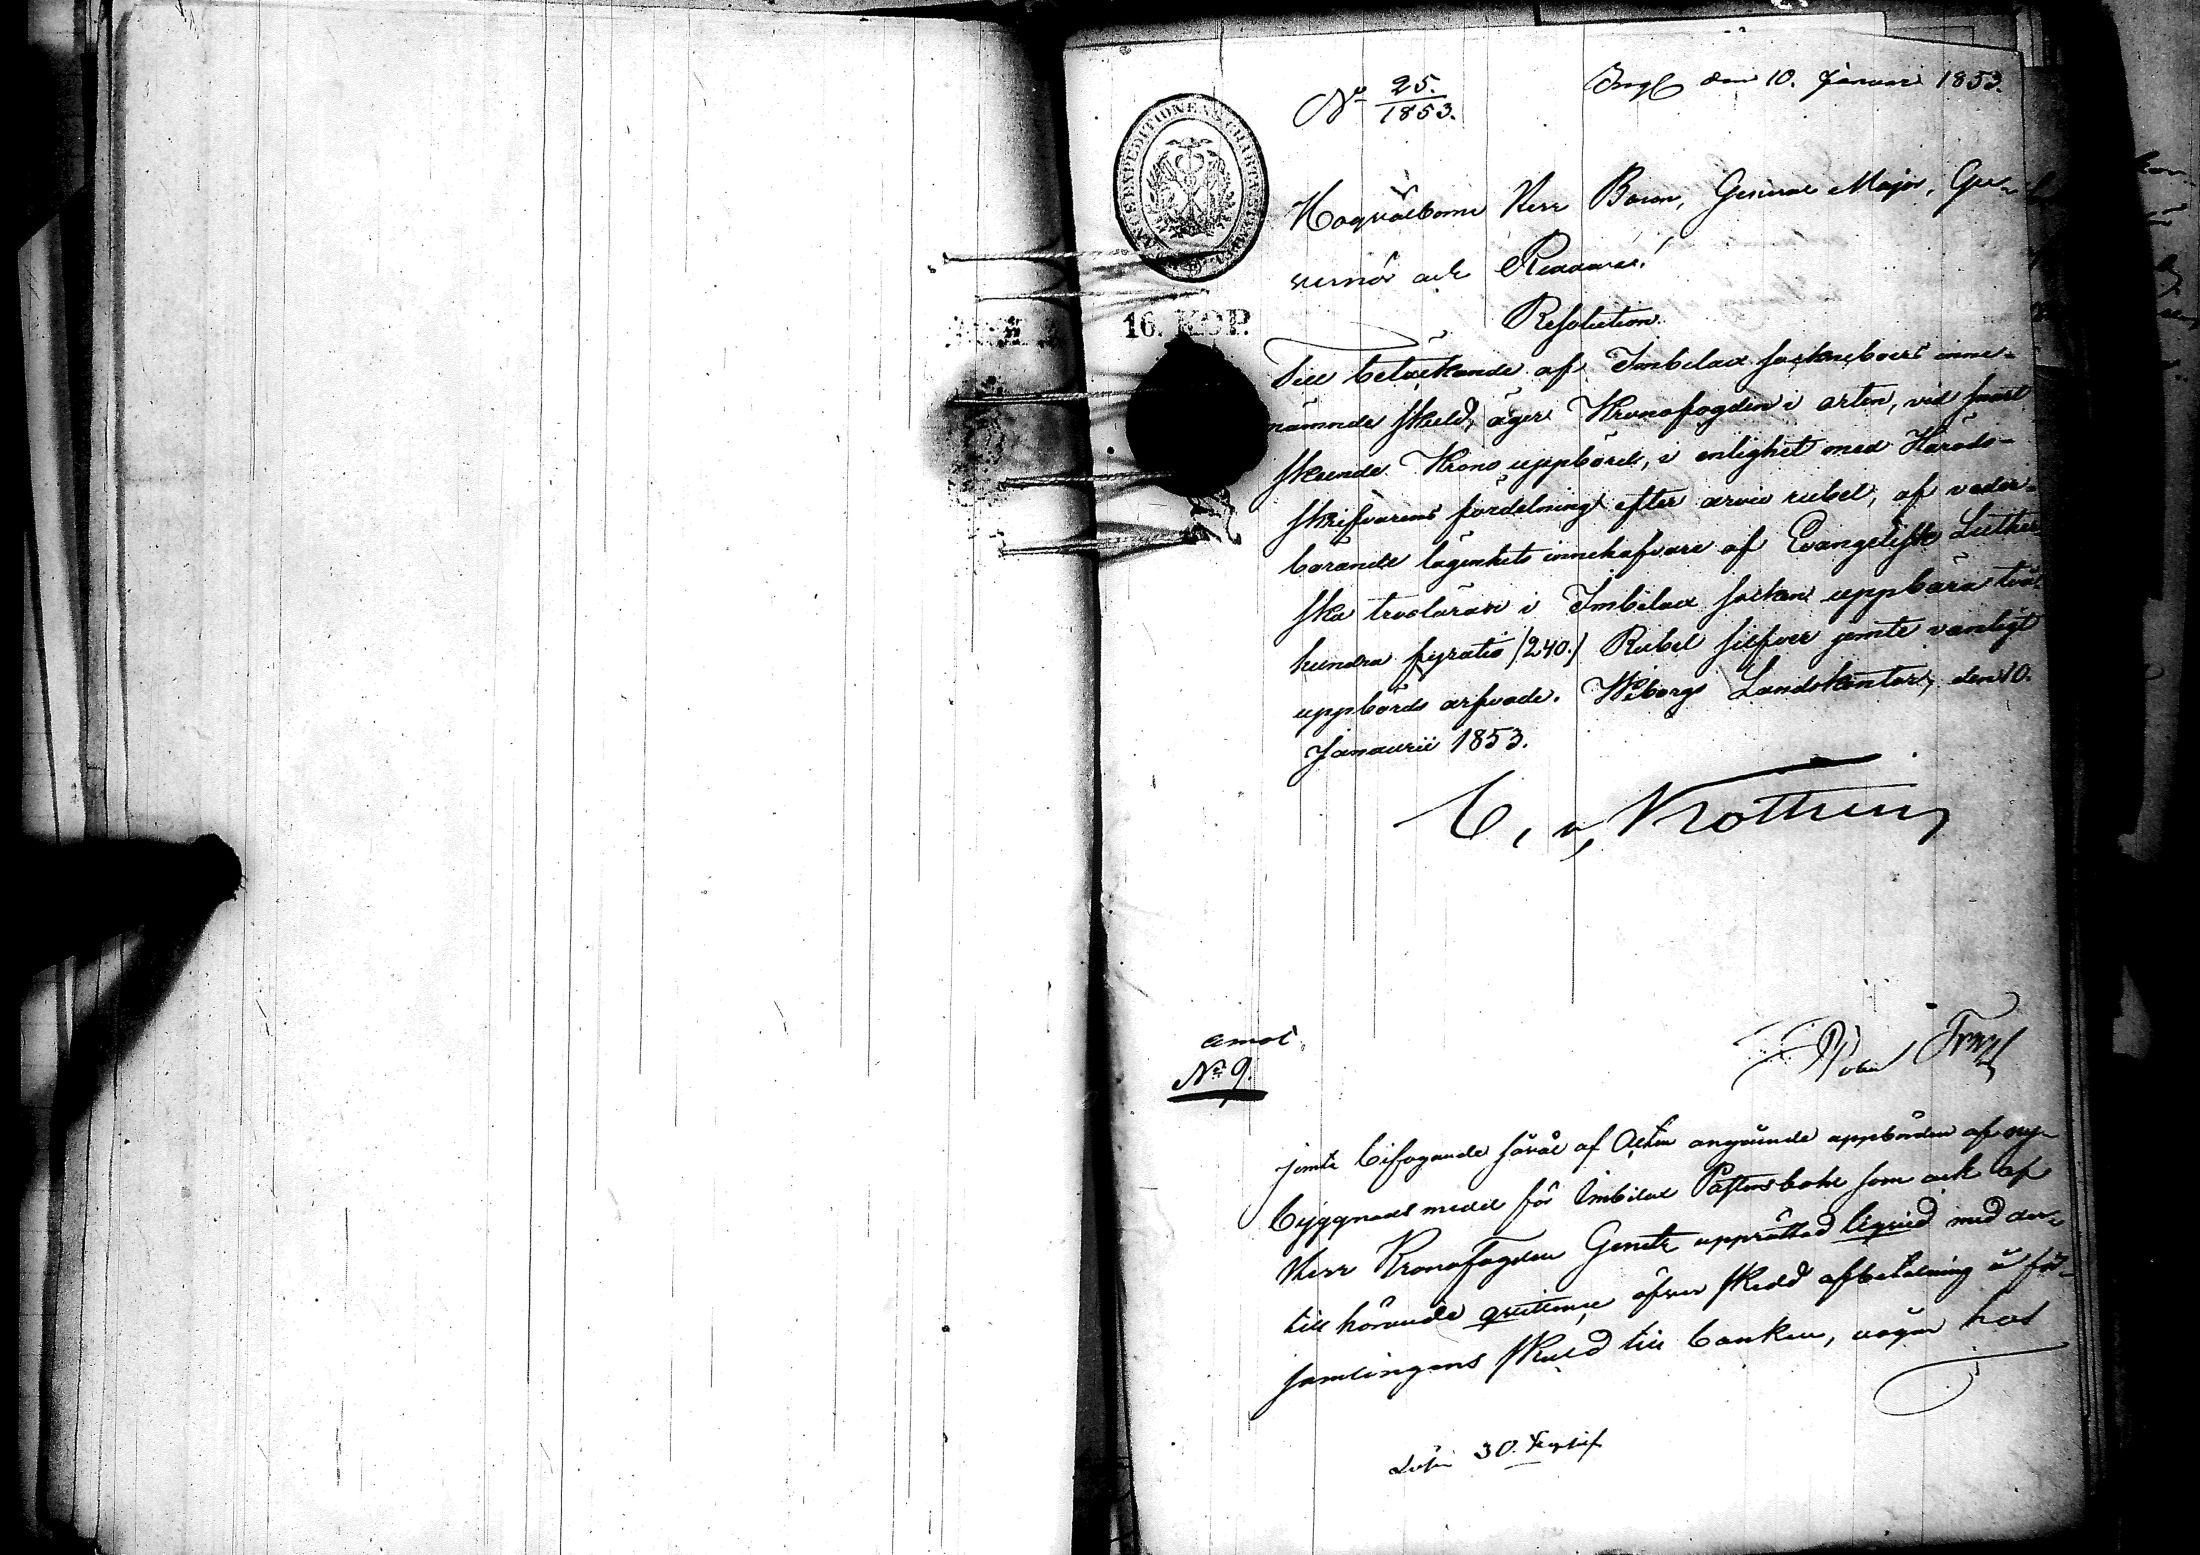 No 25./1853.
Ingf den 10. Januari 1853.
Högvälborne Herr Baron, General Major, Gu-
vernör och Riddare!
16. KOP.
Resolution.
Till betäckande af Imbilax sockneboers inne-
nämnde skuld, äger Kronofogden i orten, vid snart
skeende Krono uppbörd, i enlighet med Härads-
skrifvarens fördelning efter arvio rubel, af veder-
börande lägenhets innehafvare af Evangelisk Luther-
ska trosläran i Imbilax socken uppbära två
hundra fyratio (240.) Rubel silfver jemte vanligt
uppbörds arfvode. Wiborgs Landskontor, den 10.
Januarii 1853.
C. v. Kothen
emot
No 9.
jemte bifogande såväl af Acten angående uppbörden af ny-
byggnads medel för Imbilax Pastorsbohl som ock af
Herr Kronofogden Genetz upprättad liquid med der-
till hörande quittence öfver skedd afbetalning å för-
samlingens skuld till banken, vågar hos
Lösen 30. kop silf